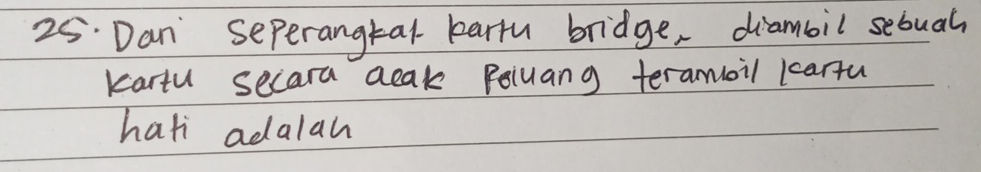 25. Dari seperangkat kartu bridge, diambil sebuah
kartu secara acak Peluang terambil kartu
hati adalah